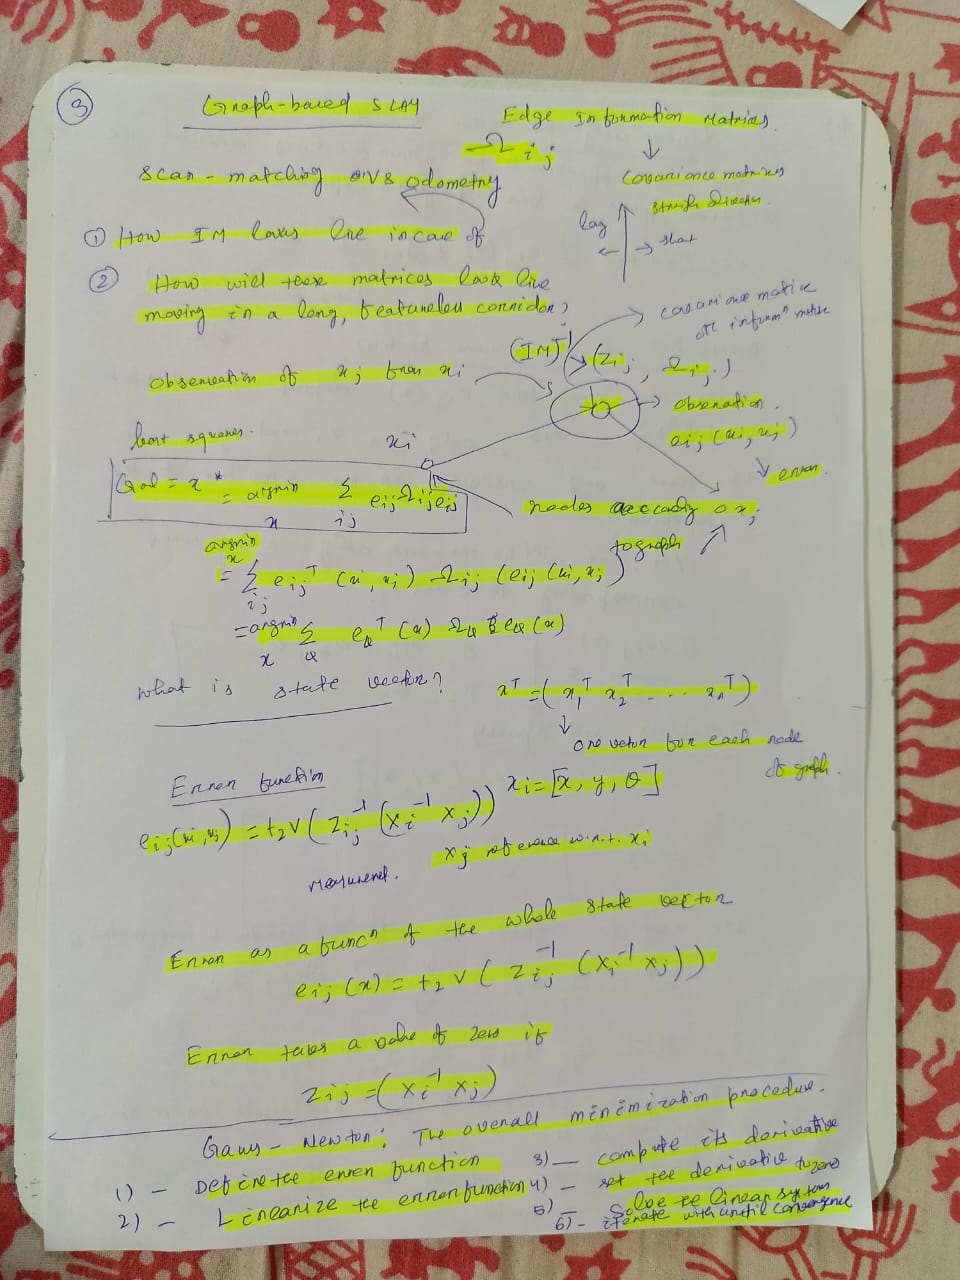 ③
Graph-based SLAM
Edge Information Matrices
Ω ij
↓
Covariance matrices
scan-matching vs odometry
long
→ short
① How IM looks like in case of
② How will these matrices look like
moving in a long, featureless corridor?
covariance matrix
or inform^n matrix
(IM)
(Zij, Ωij)
observation of xj from xi
→ observation
eij(xi, xj)
↓ error
least squares.
xi
Goal = x* = argmin_x Σ_ij eij Ωij eij
nodes according
to graph
xj
argmin_x
= Σ_ij eij^T (xi, xj) Ωij (eij (xi, xj)
= argmin_x Σ_k ek^T (x) Ωk ek(x)
what is state vector?
x^T = (x1^T x2^T ... xn^T)
↓
one vector for each node
of graph.
Error function
xi = [x, y, θ]
eij(xi, xj) = t2v(Zij^-1 (Xi^-1 Xj))
Xj reference w.r.t. xi
measurement.
Error as a func^n of the whole state vector
eij(x) = t2v(Zij^-1 (Xi^-1 Xj))
Error takes a value of zero if
Zij = (Xi^-1 Xj)
Gauss-Newton: The overall minimization procedure.
1) - Define the error function
2) - Linearize the error function
3) - compute its derivative
4) - set the derivative to zero
5) - Solve the linear system
6) - iterate until convergence